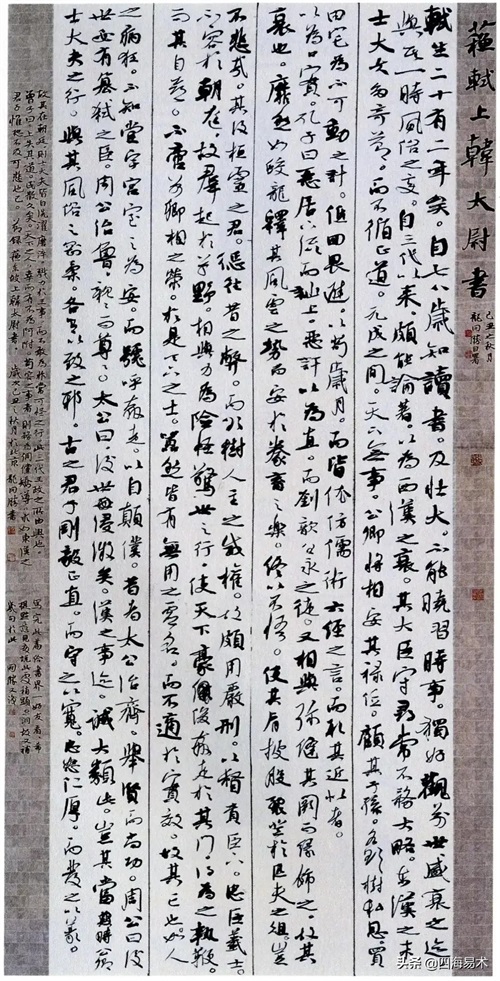 蘇軾上韓太尉書
己丑之秋月
龍開勝書
軾生二十有二年矣。自七八歲知讀書。及壯大。不能曉習時事。獨好觀前世盛衰之迹
與其一時風俗之變。自三代以來。頗能論著。以為西漢之衰。其大臣守尋常不務大略。東漢之末
士大夫多奇節。而不循正道。元成之間。天下無事。公卿將相安其祿位。顧其子孫。各欲樹私恩。買
田宅為不可動之計。低回畏避。以苟歲月。而皆依仿儒術六經之言。而取其近似者。
以為口實。孔子曰惡居下流而訕上。惡訐以為直。而劉歆谷永之徒。又相與彌縫其闕而緣飾之。故其
衰也。靡然如蛟龍釋其風雲之勢而安於豢養之樂。終以不悟。使其肩披股裂登於匹夫之俎豈
不悲哉。其後桓靈之君。懲往昔之弊。而欲樹人主之威權。故頗用嚴刑。以督責臣下。忠臣義士。
不容於朝廷。故群起於草野。相與力為險怪驚世之行。使天下豪傑奔走於其門。得為之執鞭。
而其自喜。不啻若卿相之榮。於是天下之士。囂然皆有無用之虛名。而不適於實效。故其亡也。如人
之病狂。不知堂宇宮室之為安。而號呼奔走。以自顛僕。昔者太公治齊。舉賢而尚功。周公曰後
世必有篡弒之臣。周公治魯。親親而尊尊。太公曰後世浸微矣。漢之事迹。誠大類此。豈其當時公卿
士大夫之行。與其風俗之剛柔。各有以致之邪。古之君子剛毅正直。而守之以寬。忠恕仁厚。而發之以義。
故其在朝廷則士大夫皆洗濯磨淬戮力於王事而不敢為非常可怪之行此三代王政之所由興也。
曾子曰上失其道民散久矣。
頭条 @四海易术